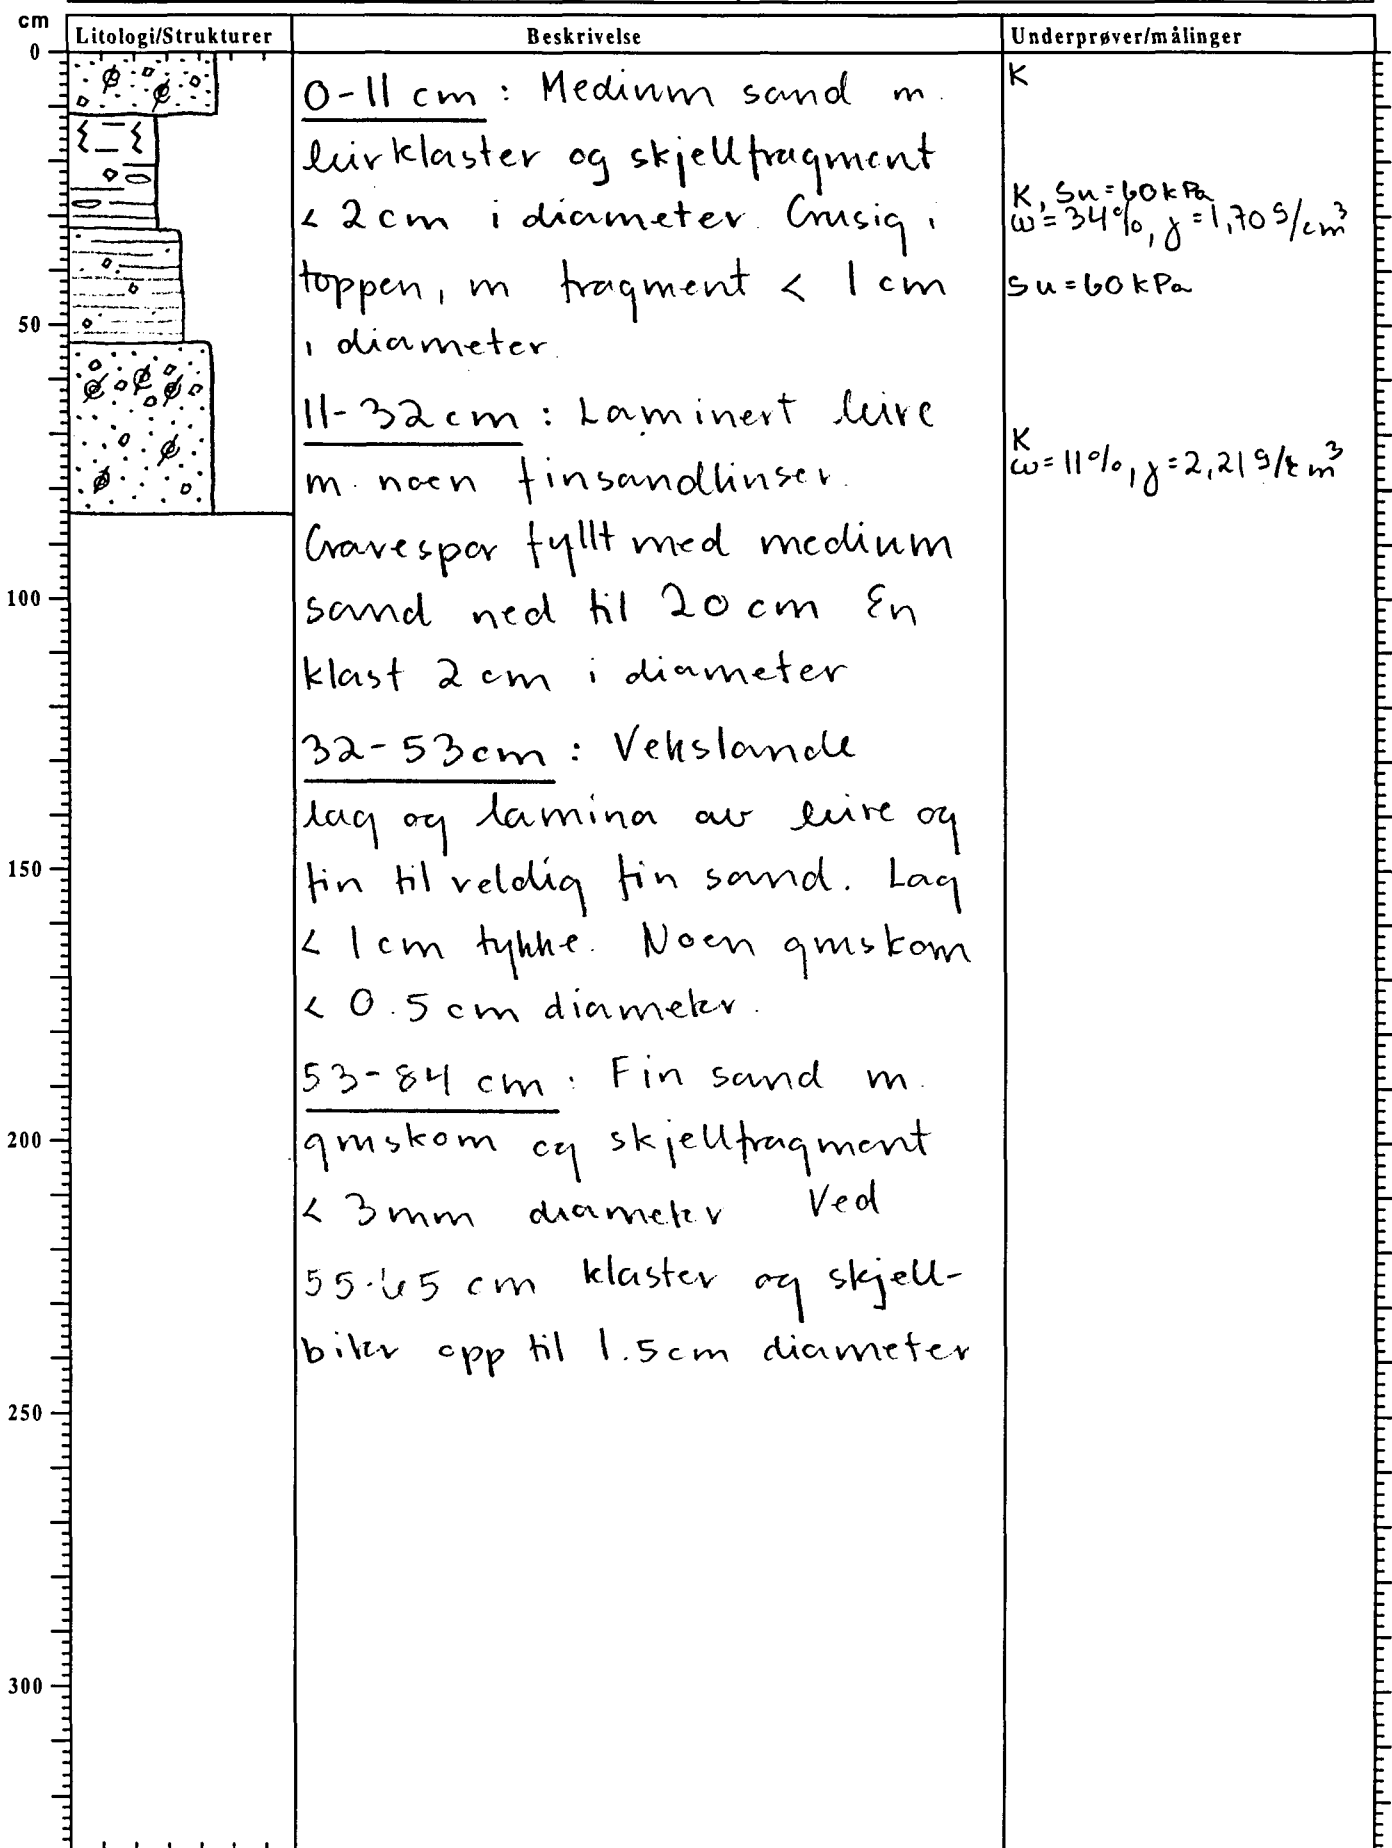 cm
Litologi/Strukturer
Beskrivelse
Underprøver/målinger
0
50
100
150
200
250
300
0-11 cm : Medium sand m.
leirklaster og skjellfragment
< 2 cm i diameter. Grusig i
toppen, m fragment < 1 cm
i diameter.
11-32 cm : Laminert leire
m. noen finsandlinser.
Gravespor fyllt med medium
sand ned til 20 cm En
klast 2 cm i diameter
32-53 cm : Vekslande
lag og lamina av leire og
fin til veldig fin sand. Lag
< 1 cm tykke. Noen gruskorn
< 0.5 cm diameter.
53-84 cm : Fin sand m.
gruskorn og skjellfragment
< 3 mm diameter Ved
55-65 cm klaster og skjell-
biter opp til 1.5 cm diameter
K
K, Su = 60 kPa
ω = 34%, γ = 1,70 g/cm³
Su = 60 kPa
K
ω = 11%, γ = 2,21 g/cm³